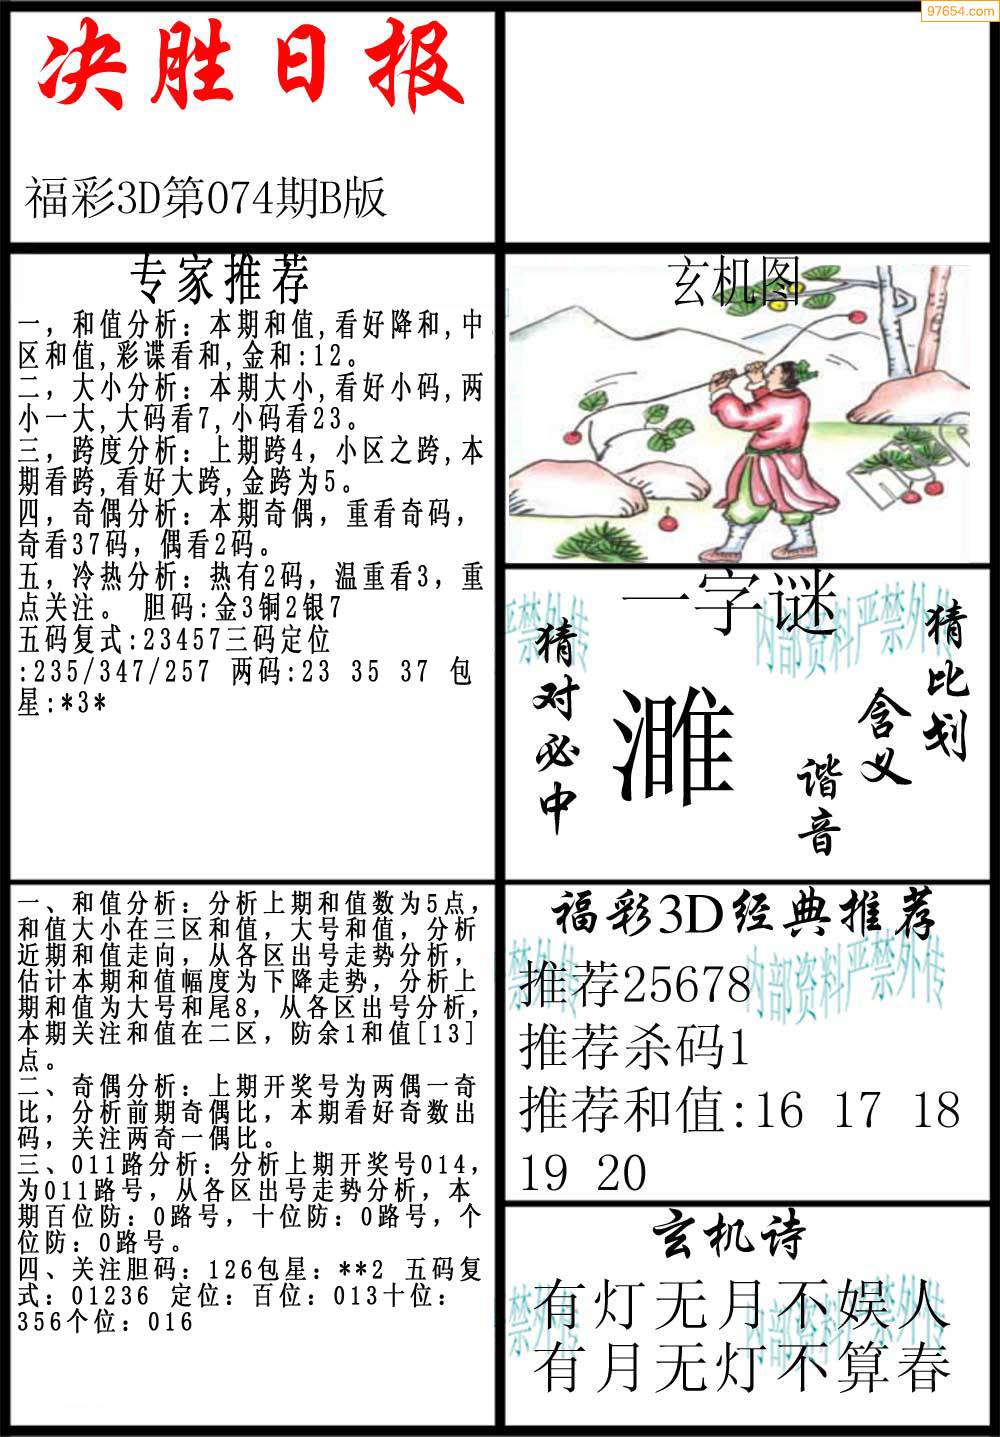 97654.com
决胜日报
福彩3D第074期B版
专家推荐
一，和值分析：本期和值,看好降和,中
区和值,彩谍看和,金和:12。
二，大小分析：本期大小,看好小码,两
小一大,大码看7,小码看23。
三，跨度分析：上期跨4，小区之跨,本
期看跨,看好大跨,金跨为5。
四，奇偶分析：本期奇偶，重看奇码，
奇看37码，偶看2码。
五，冷热分析：热有2码，温重看3，重
点关注。 胆码:金3铜2银7
五码复式:23457三码定位
:235/347/257 两码:23 35 37 包
星:*3*
一、和值分析：分析上期和值数为5点，
和值大小在三区和值，大号和值，分析
近期和值走向，从各区出号走势分析，
估计本期和值幅度为下降走势，分析上
期和值为大号和尾8，从各区出号分析，
本期关注和值在二区，防余1和值[13]
点。
二、奇偶分析：上期开奖号为两偶一奇
比，分析前期奇偶比，本期看好奇数出
码，关注两奇一偶比。
三、011路分析：分析上期开奖号014，
为011路号，从各区出号走势分析，本
期百位防：0路号，十位防：0路号，个
位防：0路号。
四、关注胆码：126包星：**2 五码复
式：01236 定位：百位：013十位：
356个位：016
玄机图
一字谜
猜对必中
濉
谐音
含义
猜比划
内部资料严禁外传
福彩3D经典推荐
推荐25678
推荐杀码1
推荐和值:16 17 18
19 20
内部资料严禁外传
玄机诗
有灯无月不娱人
有月无灯不算春
内部资料严禁外传